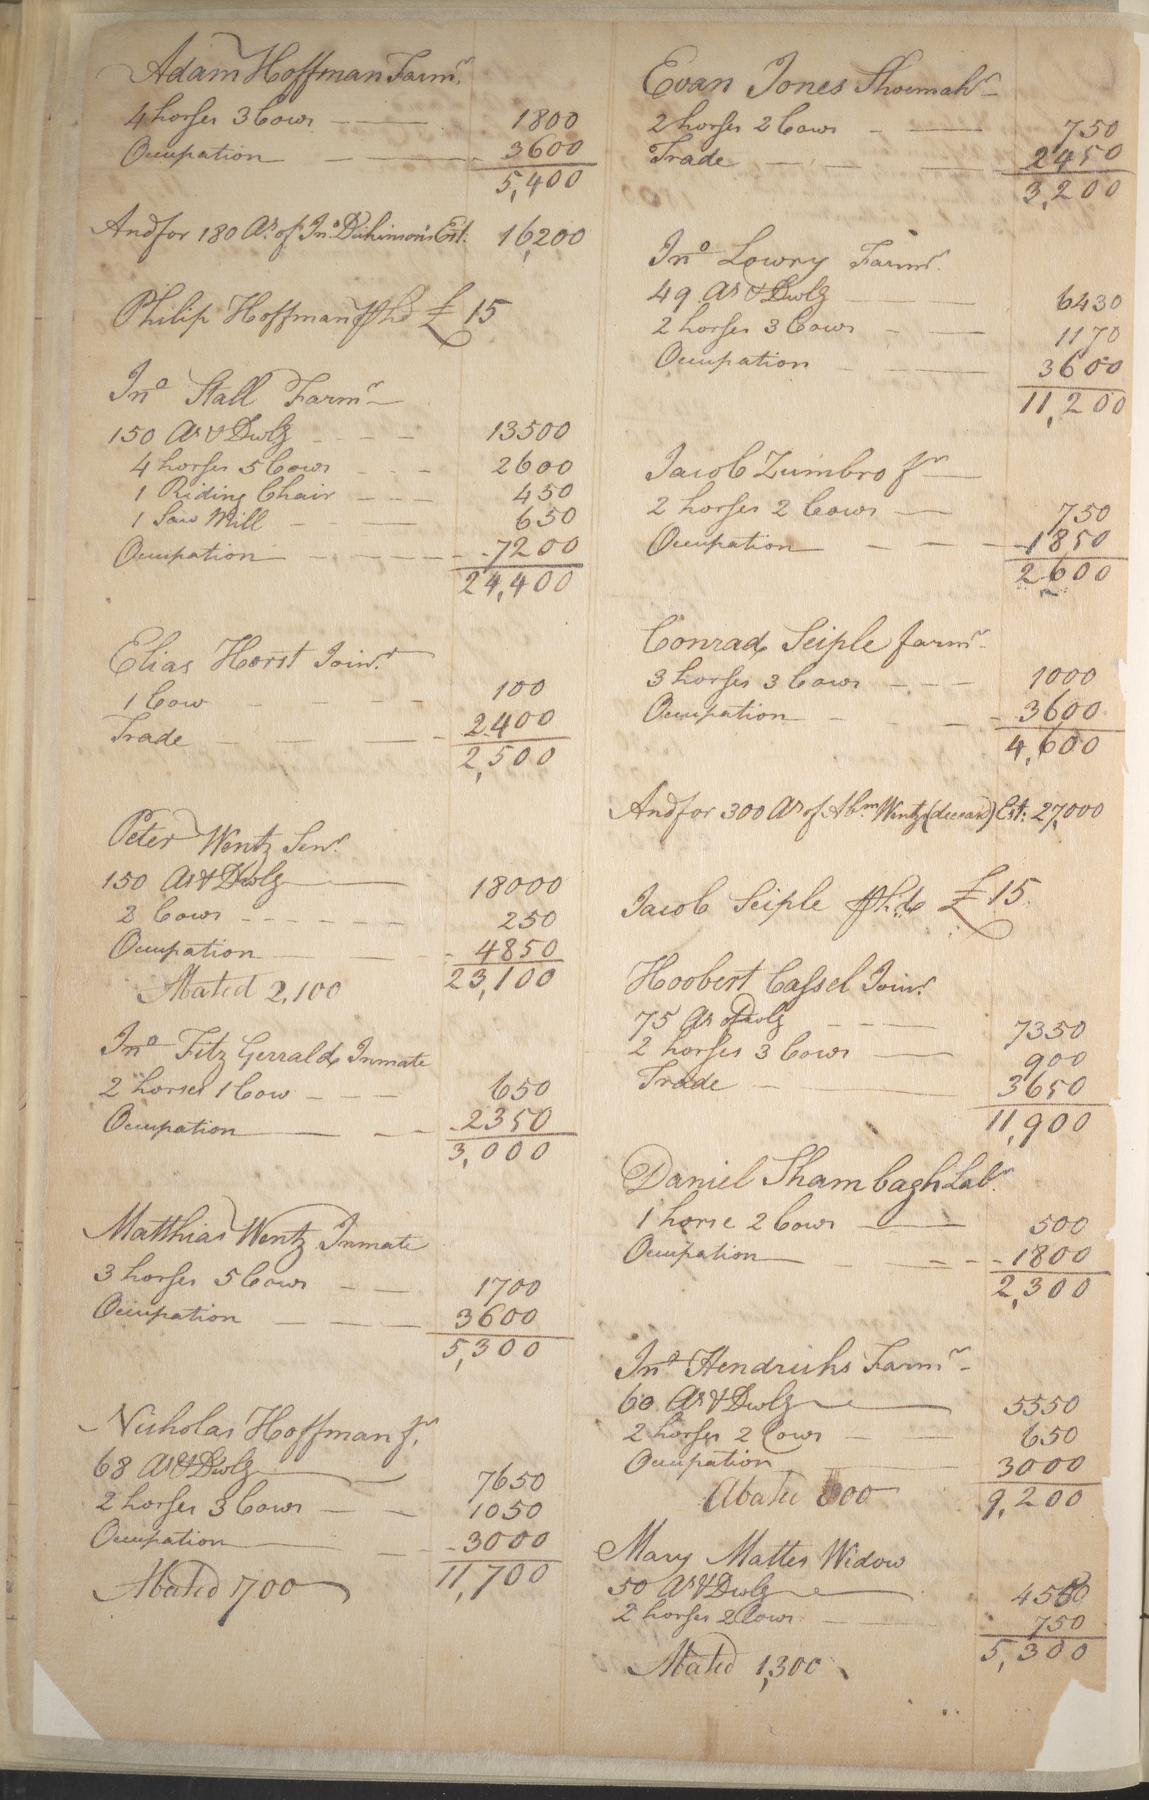 Adam Hoffman Farmr.
4 horses 3 Cows 1800
Occupation 3600
5,400
And for 180 As. of Jno. Dickinson's Est. 16,200
Philip Hoffman £15
Jno. Stall Farmr.
150 As & Dwlg 13500
4 horses 5 Cows 2600
1 Riding Chair 450
1 Saw Mill 650
Occupation 7200
24,400
Elias Horst Joinr.
1 Cow 100
Trade 2400
2,500
Peter Wentz Senr.
150 As & Dwlg 18000
2 Cows 250
Occupation 4850
23,100
Abated 2,100
Jno. Fitz Gerrald Inmate
2 horses 1 Cow 650
Occupation 2350
3,000
Matthias Wentz Inmate
3 horses 5 Cows 1700
Occupation 3600
5,300
Nicholas Hoffman Jr.
68 As & Dwlg 7650
2 horses 3 Cows 1050
Occupation 3000
11,700
Abated 700
Evan Jones Shoemakr
2 horses 2 Cows 750
Trade 2450
3,200
Jno. Lowry Farmr.
49 As & Dwlg 6430
2 horses 3 Cows 1170
Occupation 3600
11,200
Jacob Zumbro Jr
2 horses 2 Cows 750
Occupation 1850
2600
Conrad Seiple farmr
3 horses 3 Cows 1000
Occupation 3600
4,600
And for 300 As of Abm. Wentz (deceasd) Est. 27,000
Jacob Seiple £15
Hoobert Cassel Joinr.
75 As & Dwlg 7350
2 horses 3 Cows 900
Trade 3650
11,900
Daniel Shambagh Labr.
1 horse 2 Cows 500
Occupation 1800
2,300
Jno. Hendricks Farmr
60 As & Dwlg 5550
2 horses 2 Cows 650
Occupation 3000
9,200
Abated 800
Mary Matter Widow
50 As & Dwlg 4550
2 horses 2 Cows 750
5,300
Abated 1,300